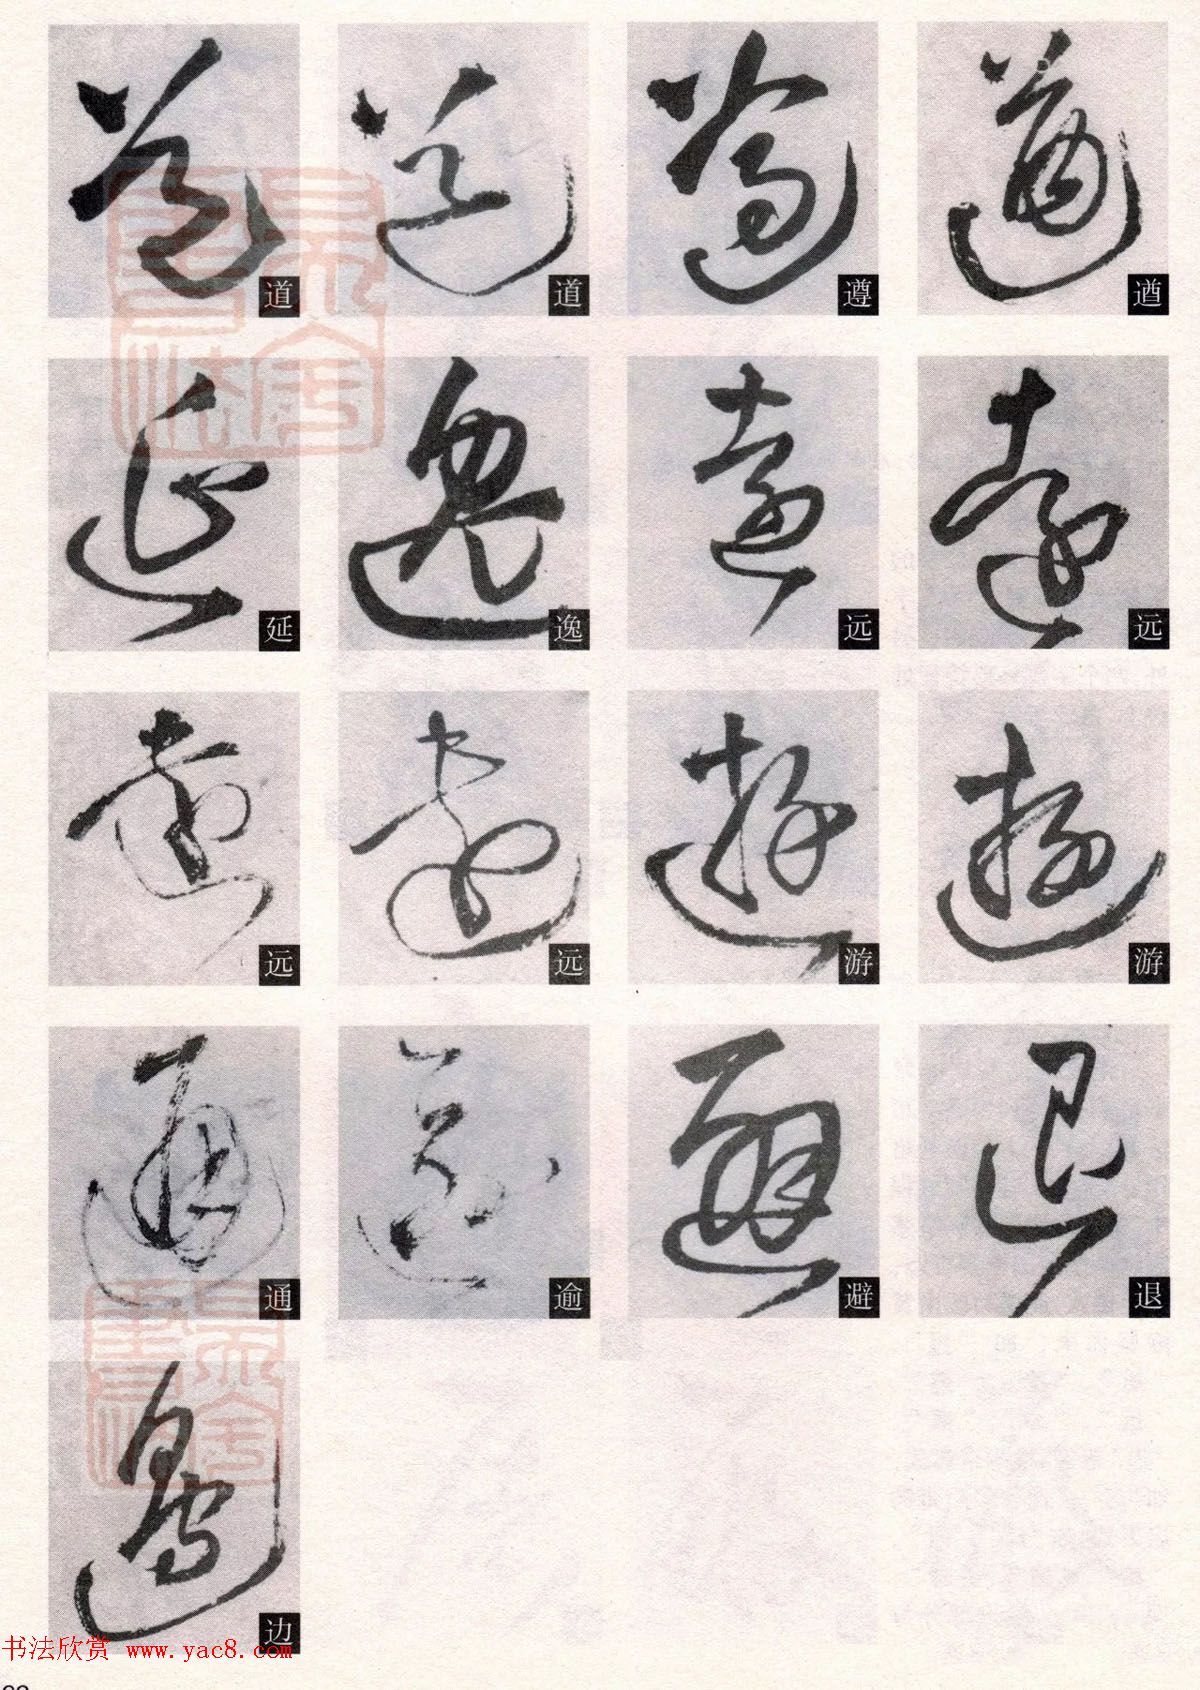 道 道 遵 遒
延 逸 远 远
远 远 游 游
通 逾 避 退
边
书法欣赏 www.yac8.com